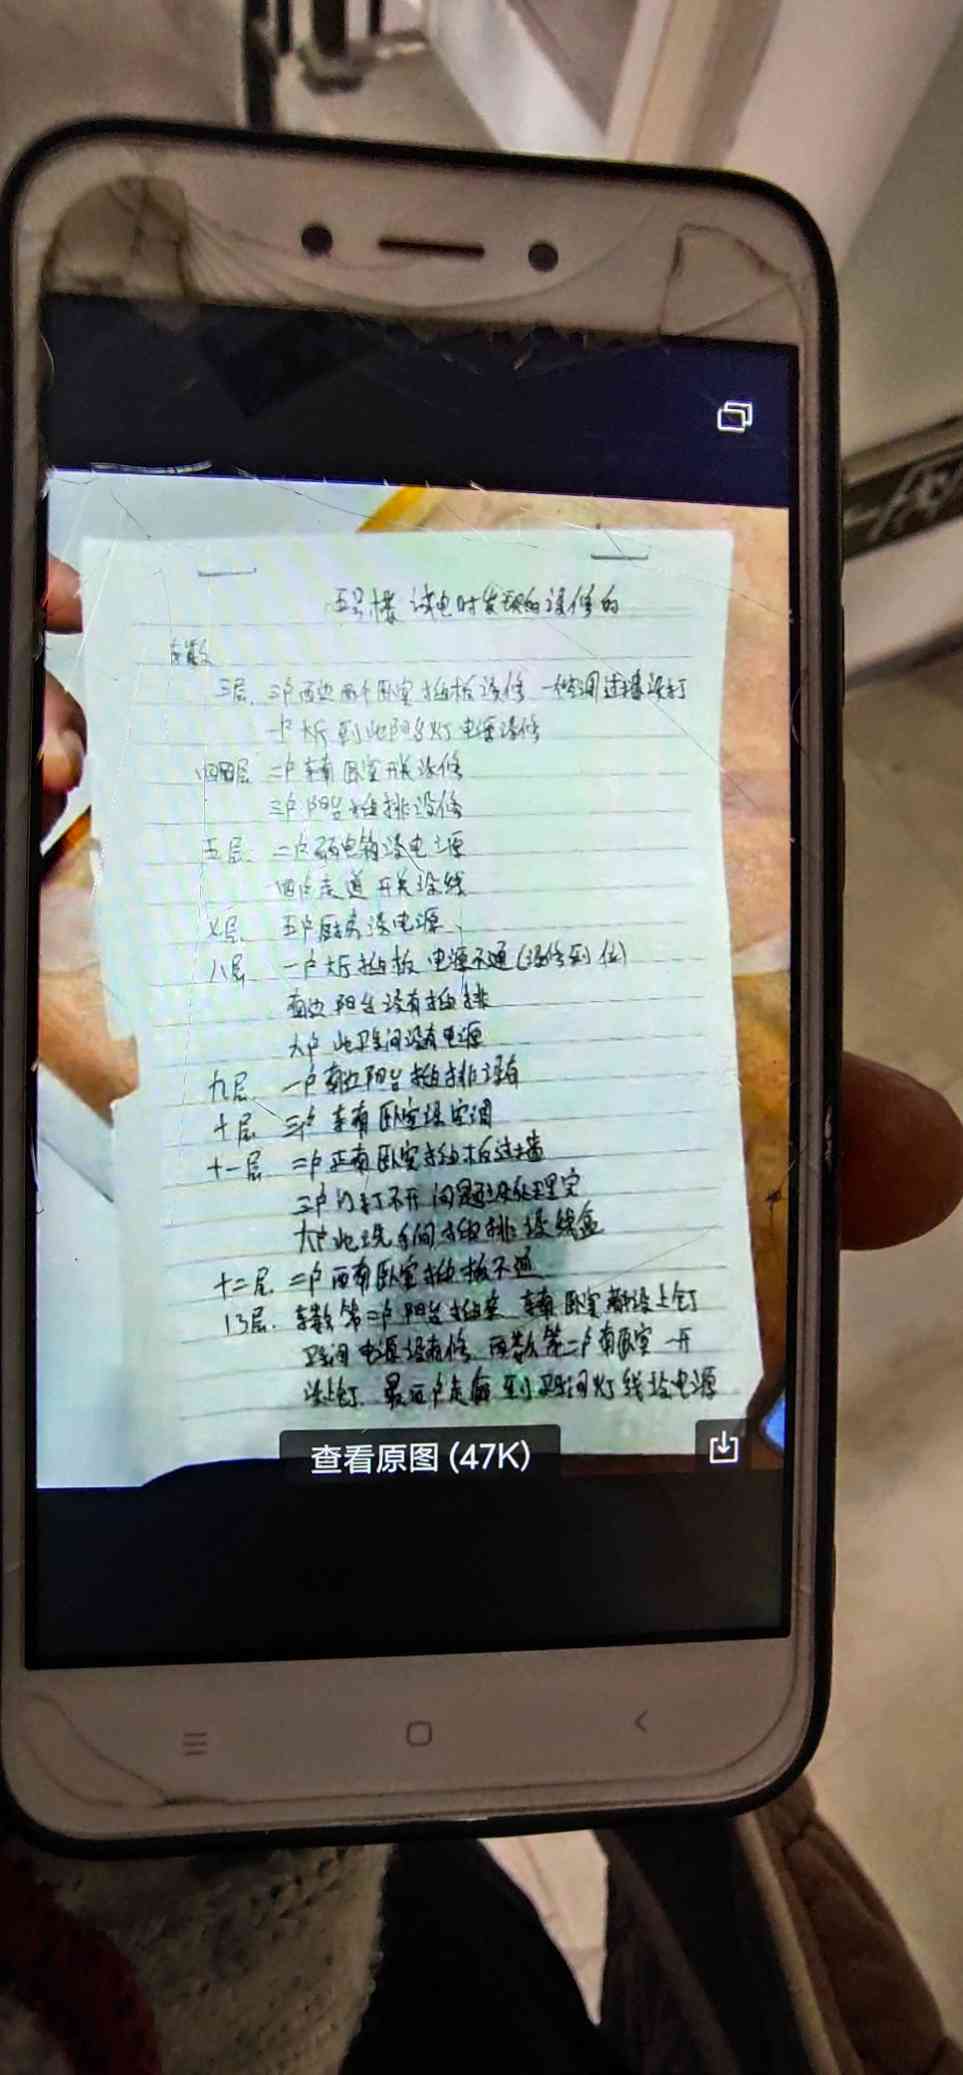 五号楼 试电时发现的没修的
东数
三层 三户西边两个卧室插板没修 一个空调过墙没打
一户大厅到北阳台灯电源没修
四层 二户东南卧室开关没修
三户阳台插排没修
五层 二户弱电箱没电源
四户走道开关没线
七层 五户厨房没电源
八层 一户大厅插板电源不通(没修到位)
南边阳台没有插排
六户北卫生间没有电源
九层 一户南边阳台插排没有
十层 三户东南卧室没空调
十一层 二户正南卧室插板过墙
三户门打不开问题没处理完
六户北洗手间插排没线盒
十二层 二户西南卧室插板不通
13层 东数第二户阳台插座 东南卧室都没上钉
卫生间电源没有修 西数第二户南卧室一开
没上钉 最西户走廊到卫生间灯线没电源
查看原图 (47K)